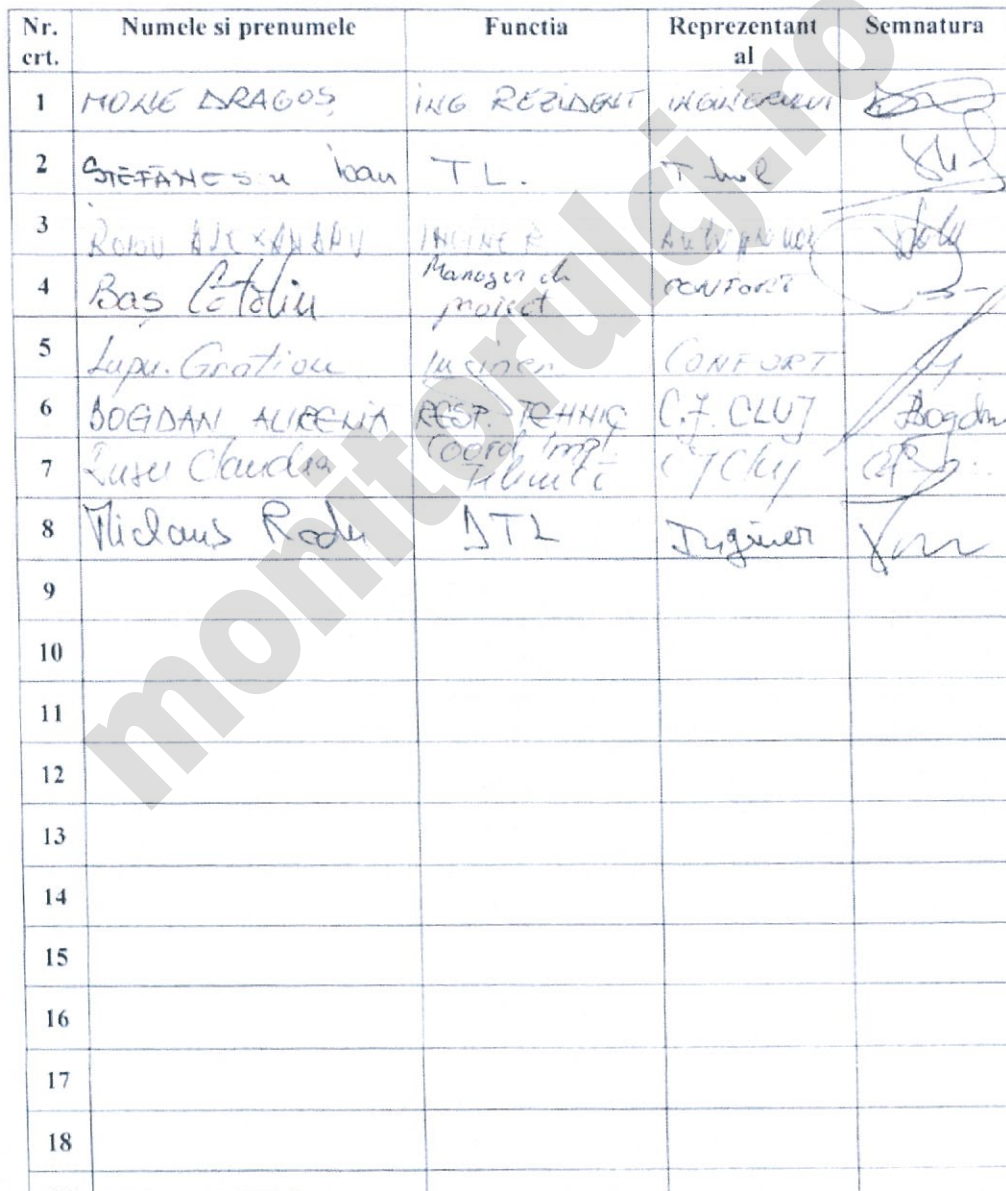 Nr. crt. Numele si prenumele Functia Reprezentant al Semnatura
1 MONE DRAGOȘ ING REZIDENT INGINERULUI
2 ȘTEFĂNESCU Ioan TL.
3 ROBU ALEXANDRU INGINER
4 Baș Cătălin Manager de proiect CONFORT
5 Lupu Grațian Inginer CONFORT
6 BOGDAN AURELIA RESP. TEHNIC C.J. CLUJ Bogdan
7 Rusu Claudia Coord. impl. CJ Cluj
8 Miclaus Radu DTL Inginer
9
10
11
12
13
14
15
16
17
18
monitorulcj.ro